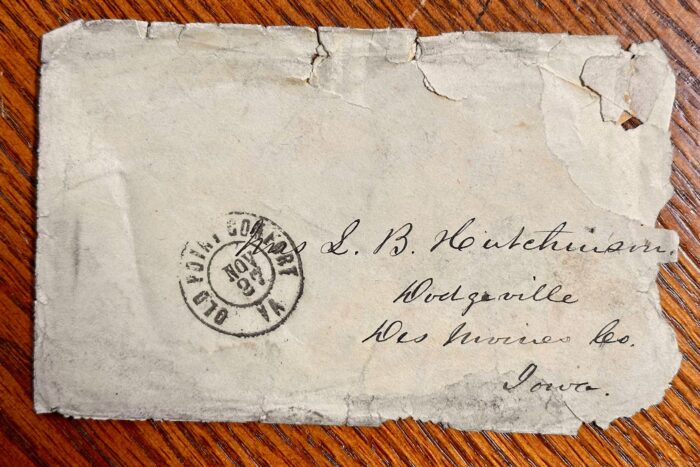 OLD POINT COMFORT VA
NOV
27
Mrs L. B. Hutchinson.
Dodgeville
Des Moines Co.
Iowa.